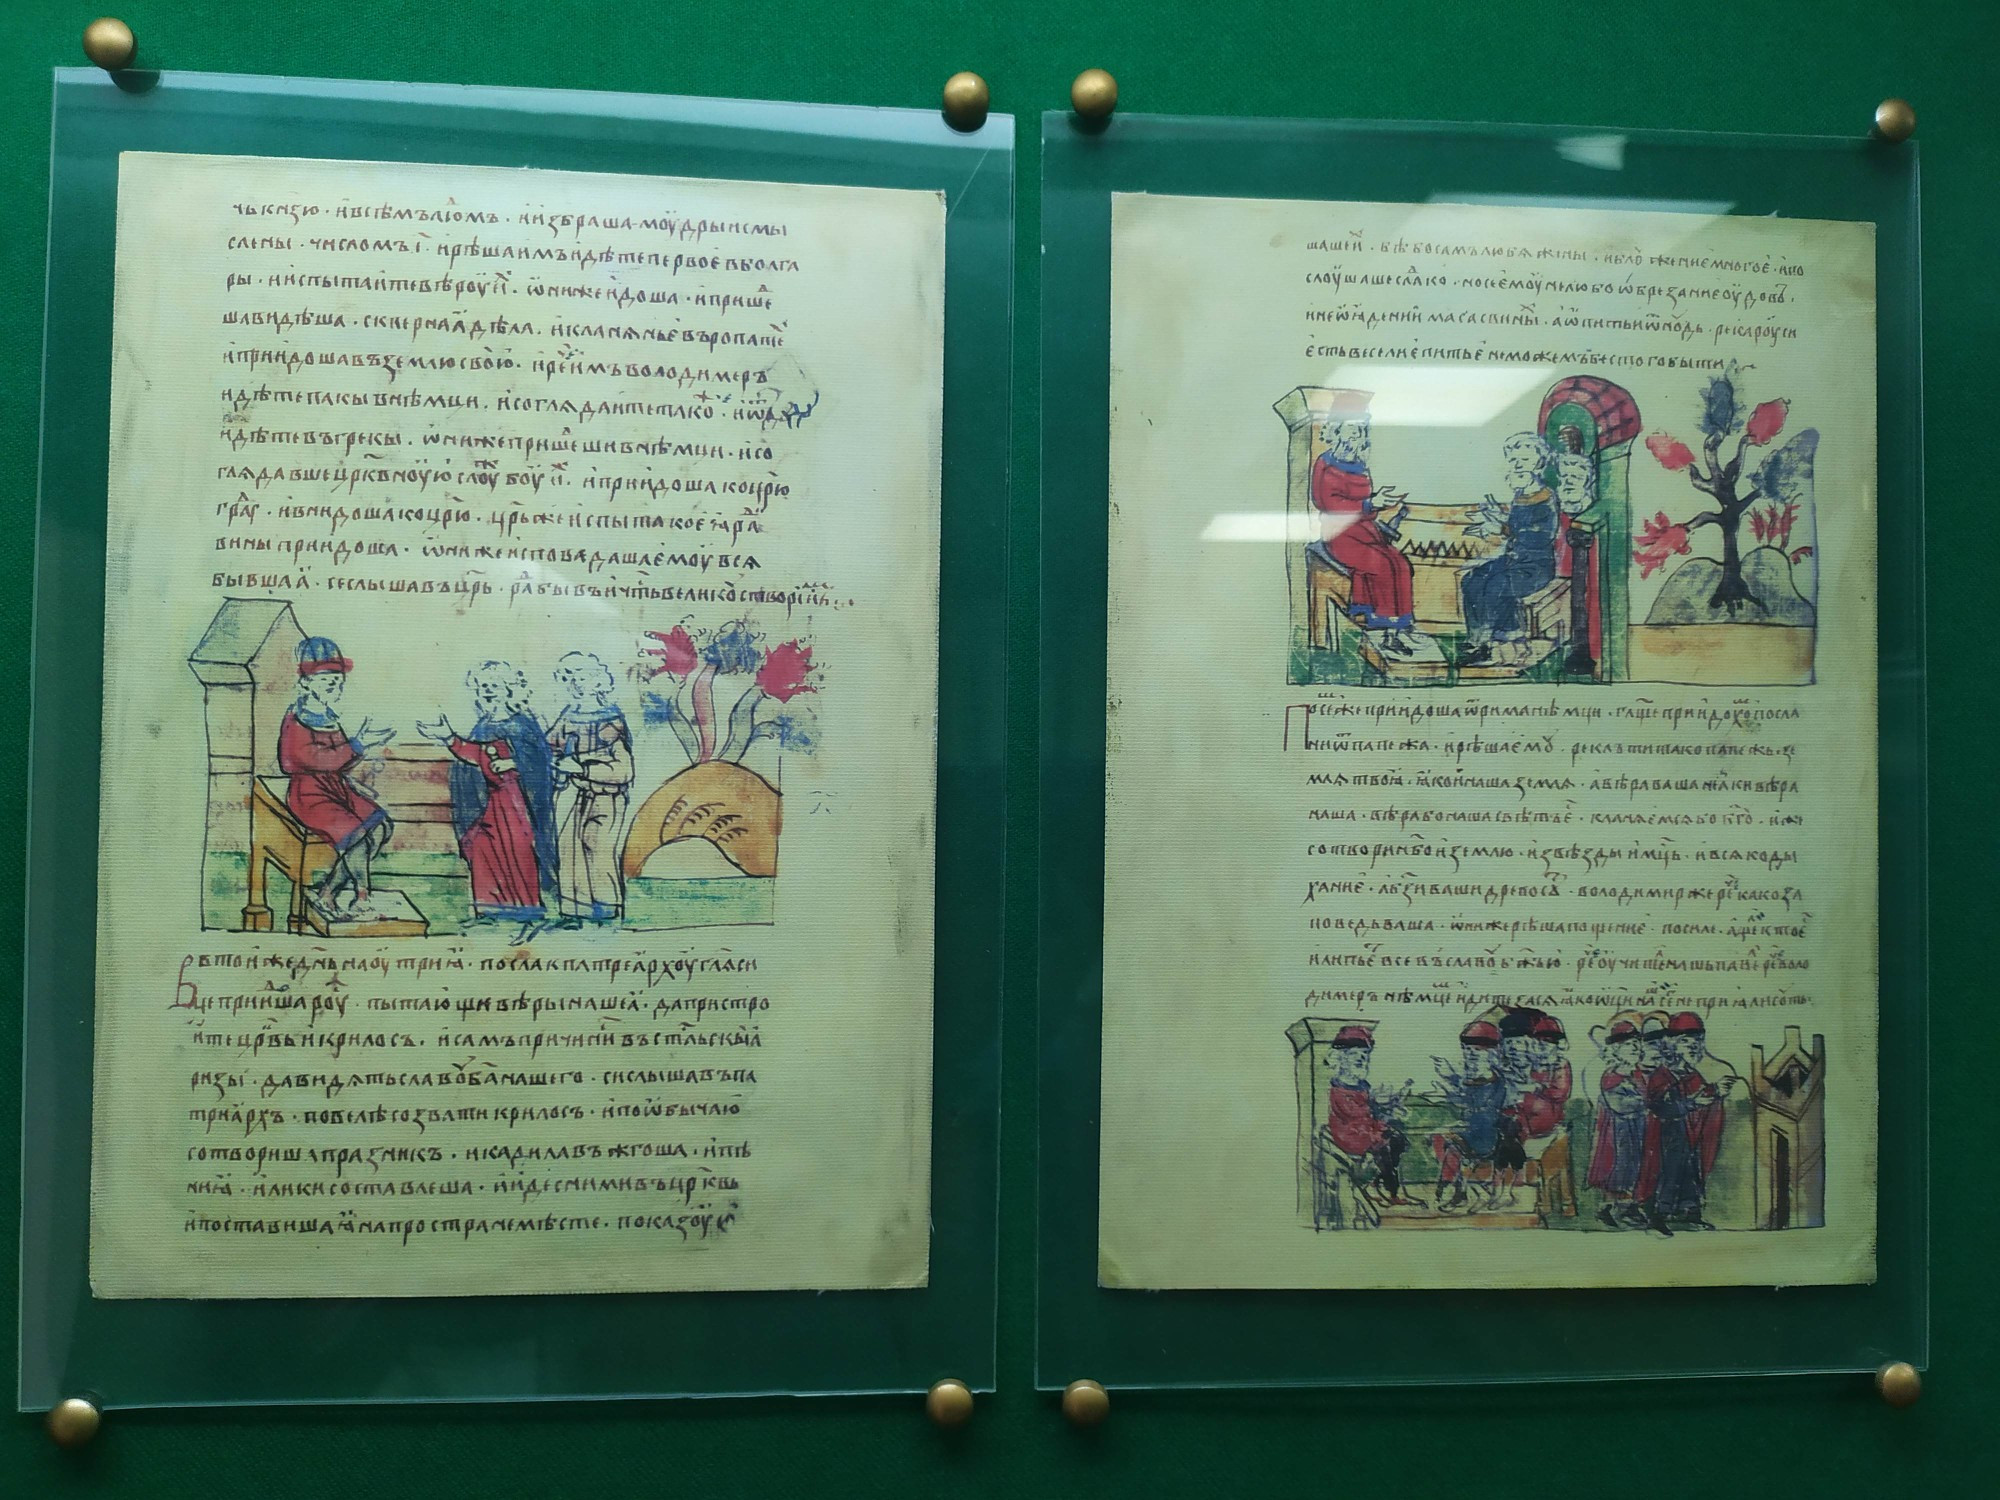 чь кнѧзю · и всѣмъ люⷣмъ · и избраша моужи дры и смы
слены · числомъ і҃ · и рѣша имъ идѣте первоє в болга
ры · и испытаите вѣроу и҃ · ѡни же идоша · и пришеⷣ
ша видѣша · сквернаꙗ дѣла · и кланѧньє въ ропатѣ
и приидоша въ землю свою · и реⷱ имъ володимеръ
идѣте пакы в нѣмци · и соглѧдаите тако · и ѿ
идѣте въ грекы · ѡни же пришеⷣши в нѣмци · и со
глѧдавше црк҃вноую слоуⷤбоу и҃ · и приидоша ко цр҃ю
граⷣ · и внидоша ко цр҃ю · цр҃ь же испыта коєꙗ раⷣ
вины приидоша · ѡни же исповѣдаша ємоу всѧ
бывшаꙗ · се слышавъ цр҃ь · раⷣ бывъ и чⷭть велику створи имъ
въ тои же дн҃ь наоутриꙗ · посла к патреарху глѧ си
це приидоша роуⷭ · пытающи вѣры нашеꙗ · да пристро
ите цр҃квь и крилосъ · и самъ причини в ст҃льскыꙗ
ризы · да видѧть славоу ба҃ нашего · си слышавъ па
триархъ · повелѣ созвати крилосъ · и по ѡбычаю
сотвориша празникъ · и кадила въжгоша · и пѣ
ниꙗ · и лики составлеша · и иде с ними въ црк҃вь
и поставиша ꙗ на простране мѣсте · показоую
шаше и · бѣ бо самъ любѧ жены · и блоⷣженїе многоє · и по
слоушаше слаⷣко · но се ємоу не любо ѡбрезание оудовъ ·
и не ꙗденїи мѧса свинаꙗ · а ѡ питьи ѿноудь · река роуси
єсть веселиє питьє не можемъ бес того быти
Посеⷨ же приидоша ѿ рима нѣмци · гл҃ще приидохоⷨ посла
ни ѿ папежа · и рѣша ємоу · реклъ ти тако папежь · зе
млѧ твоꙗ · ꙗко и наша землѧ · а вѣра ваша не аки вѣра
наша · вѣра бо наша свѣтъ єⷭ · кланѧемсѧ бо҃гоу · иже
сотвори нб҃о и землю · и звѣзды и мцⷭь · и всѧко ды
ханиє · а бз҃и ваши древо соуⷮ · володимир же реⷱ кака за
поведь ваша · ѡни же рѣша пощениє · по силе · аще кто єⷭ
или пьєⷮ все въ славоу бж҃ью · реⷱ оучитель нашь паве · реⷱ воло
димеръ нѣмцеⷨ идите ѡпѧть ꙗко ѿци наши сего не приꙗли соуть